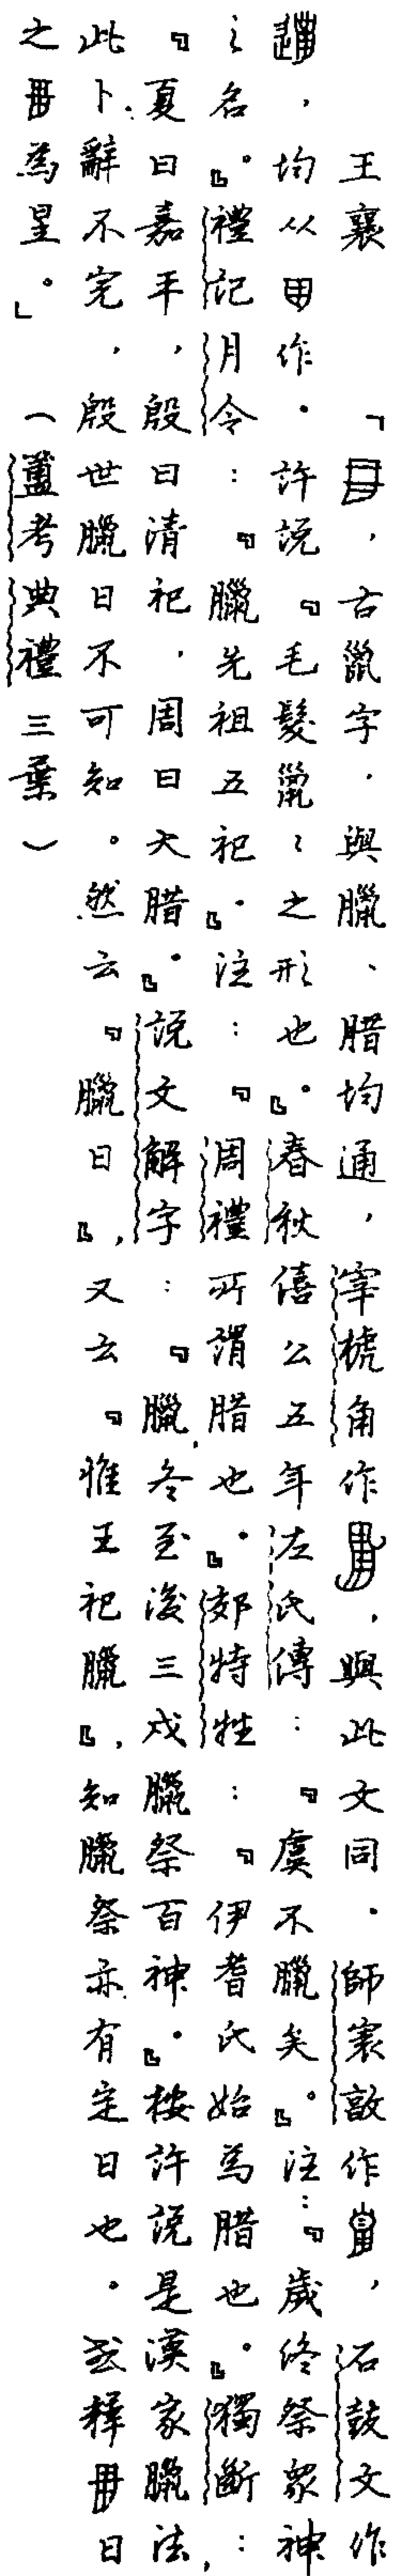 王襄　「，古巤字，與臘、腊均通，宰椃角作，與此文同。師寰敦作，石鼓文作
，均从作。許說『毛髮巤〻之形也。』春秋僖公五年左氏傳：『虞不臘矣。』注：『歲終祭眾神
之名。』禮記月令：『臘先祖五祀』。注：『周禮所謂腊也』。郊特牲：『伊耆氏始為腊也。』獨斷：
『夏曰嘉平，殷曰清祀，周曰大腊。』說文解字：『臘，冬至後三戌臘祭百神』。按許說是漢家臘法，
此卜辭不完，殷世臘日不可知。然云『臘日』，又云『惟王祀臘』，知臘祭亦有定日也。或釋日
之為星。」（簠考典禮三葉）